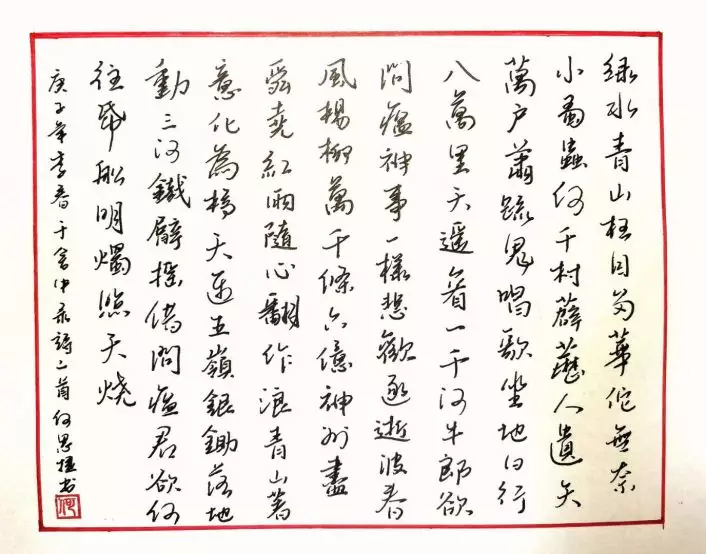 綠水青山枉自多華佗無奈
小蟲何千村薜藶人遺矢
萬戶蕭疏鬼唱歌坐地日行
八萬里天遥看一千河牛郎欲
問瘟神事一樣悲歡逐逝波春
風楊柳萬千條六億神州盡
舜堯紅雨隨心翻作浪青山著
意化為橋天連五嶺銀鋤落地
動三河鐵臂摇借問瘟君欲何
往帋船明燭照天燒
庚子年季春于舍中录詩二首何思书
何